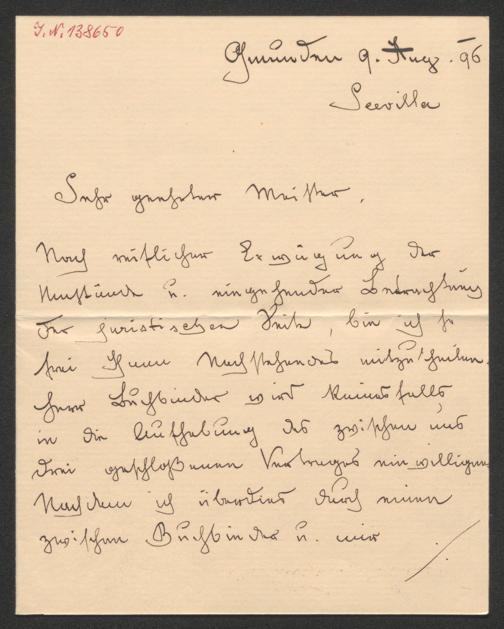 J.N. 138650
Gmunden 9. Aug. 96
Seevilla
Sehr geehrter Meister,
Nach reiflicher Erwägung der
Umstände u. eingehender Betrachtung
der juristischen Seite, bin ich so
frei Ihnen Nachstehendes mitzutheilen.
Herr Buchbinder wird keinesfalls
in die Aufhebung des zwischen uns
drei geschloßenen Vertrages einwilligen.
Nachdem ich überdies durch einen
zwischen Buchbinder u. mir